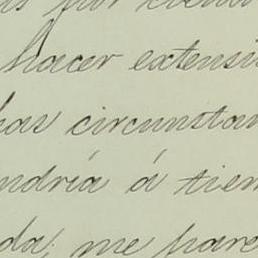 hacer extensi
has circunstan
ndría á tiem
da; me pare